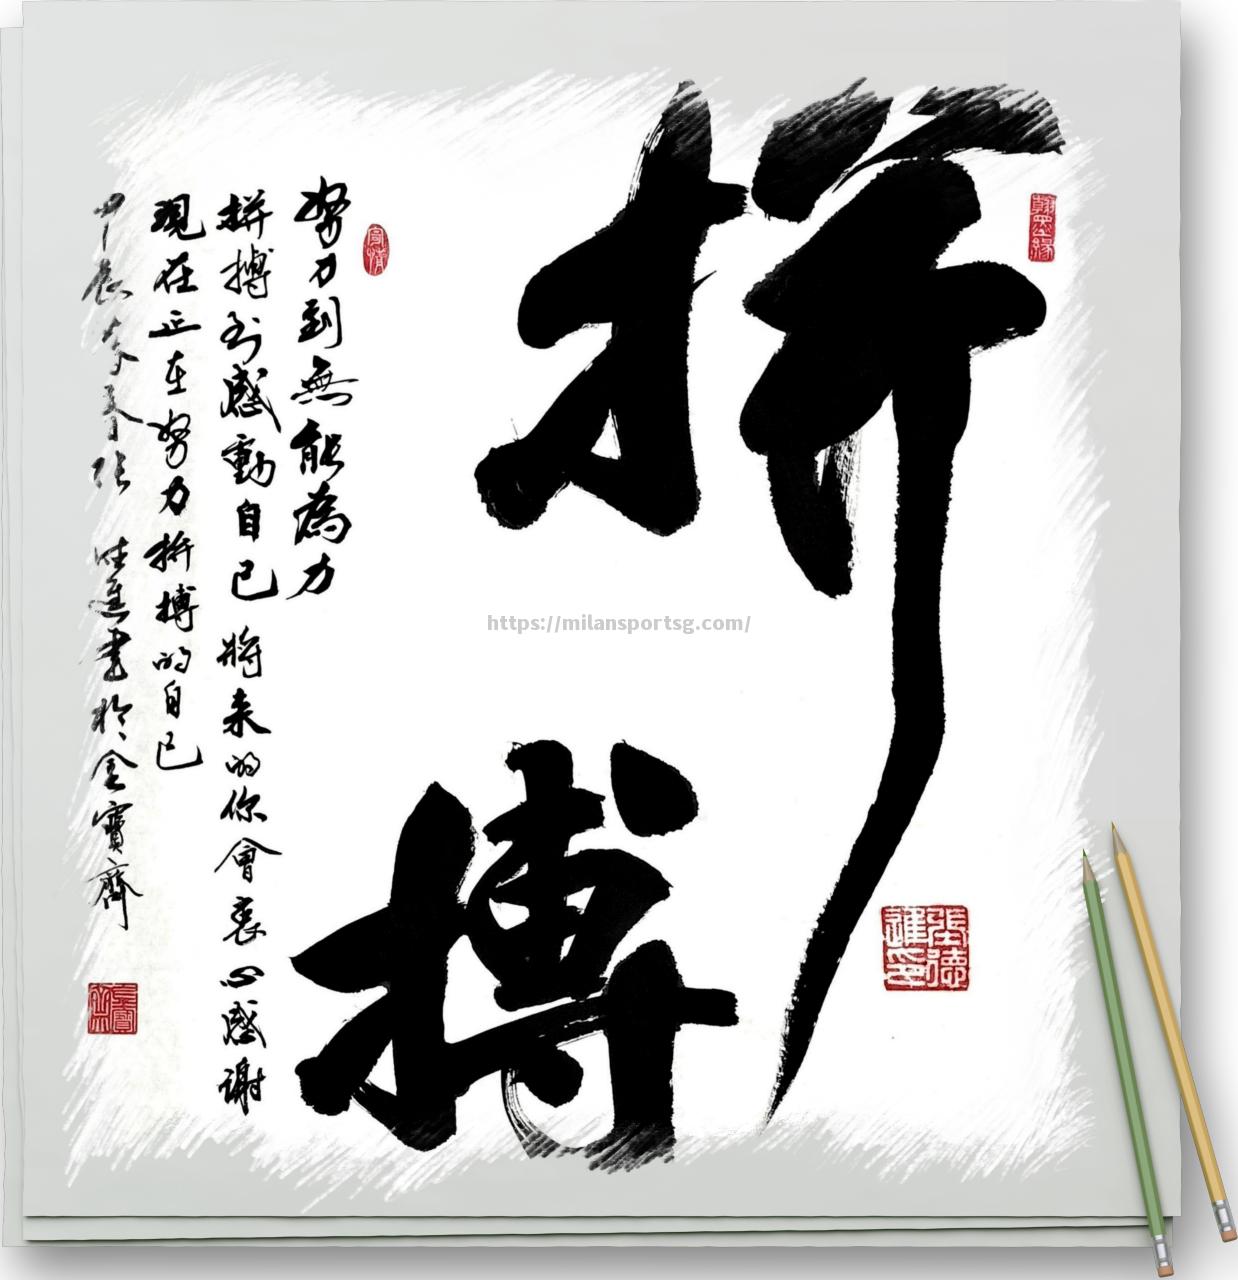 拼搏
努力到無能為力
拼搏到感動自己 將来的你會衷心感谢
現在正在努力拼搏的自己
甲辰年季春張德進書於金寶齋
翰墨緣
張德進印
https://milansportsg.com/